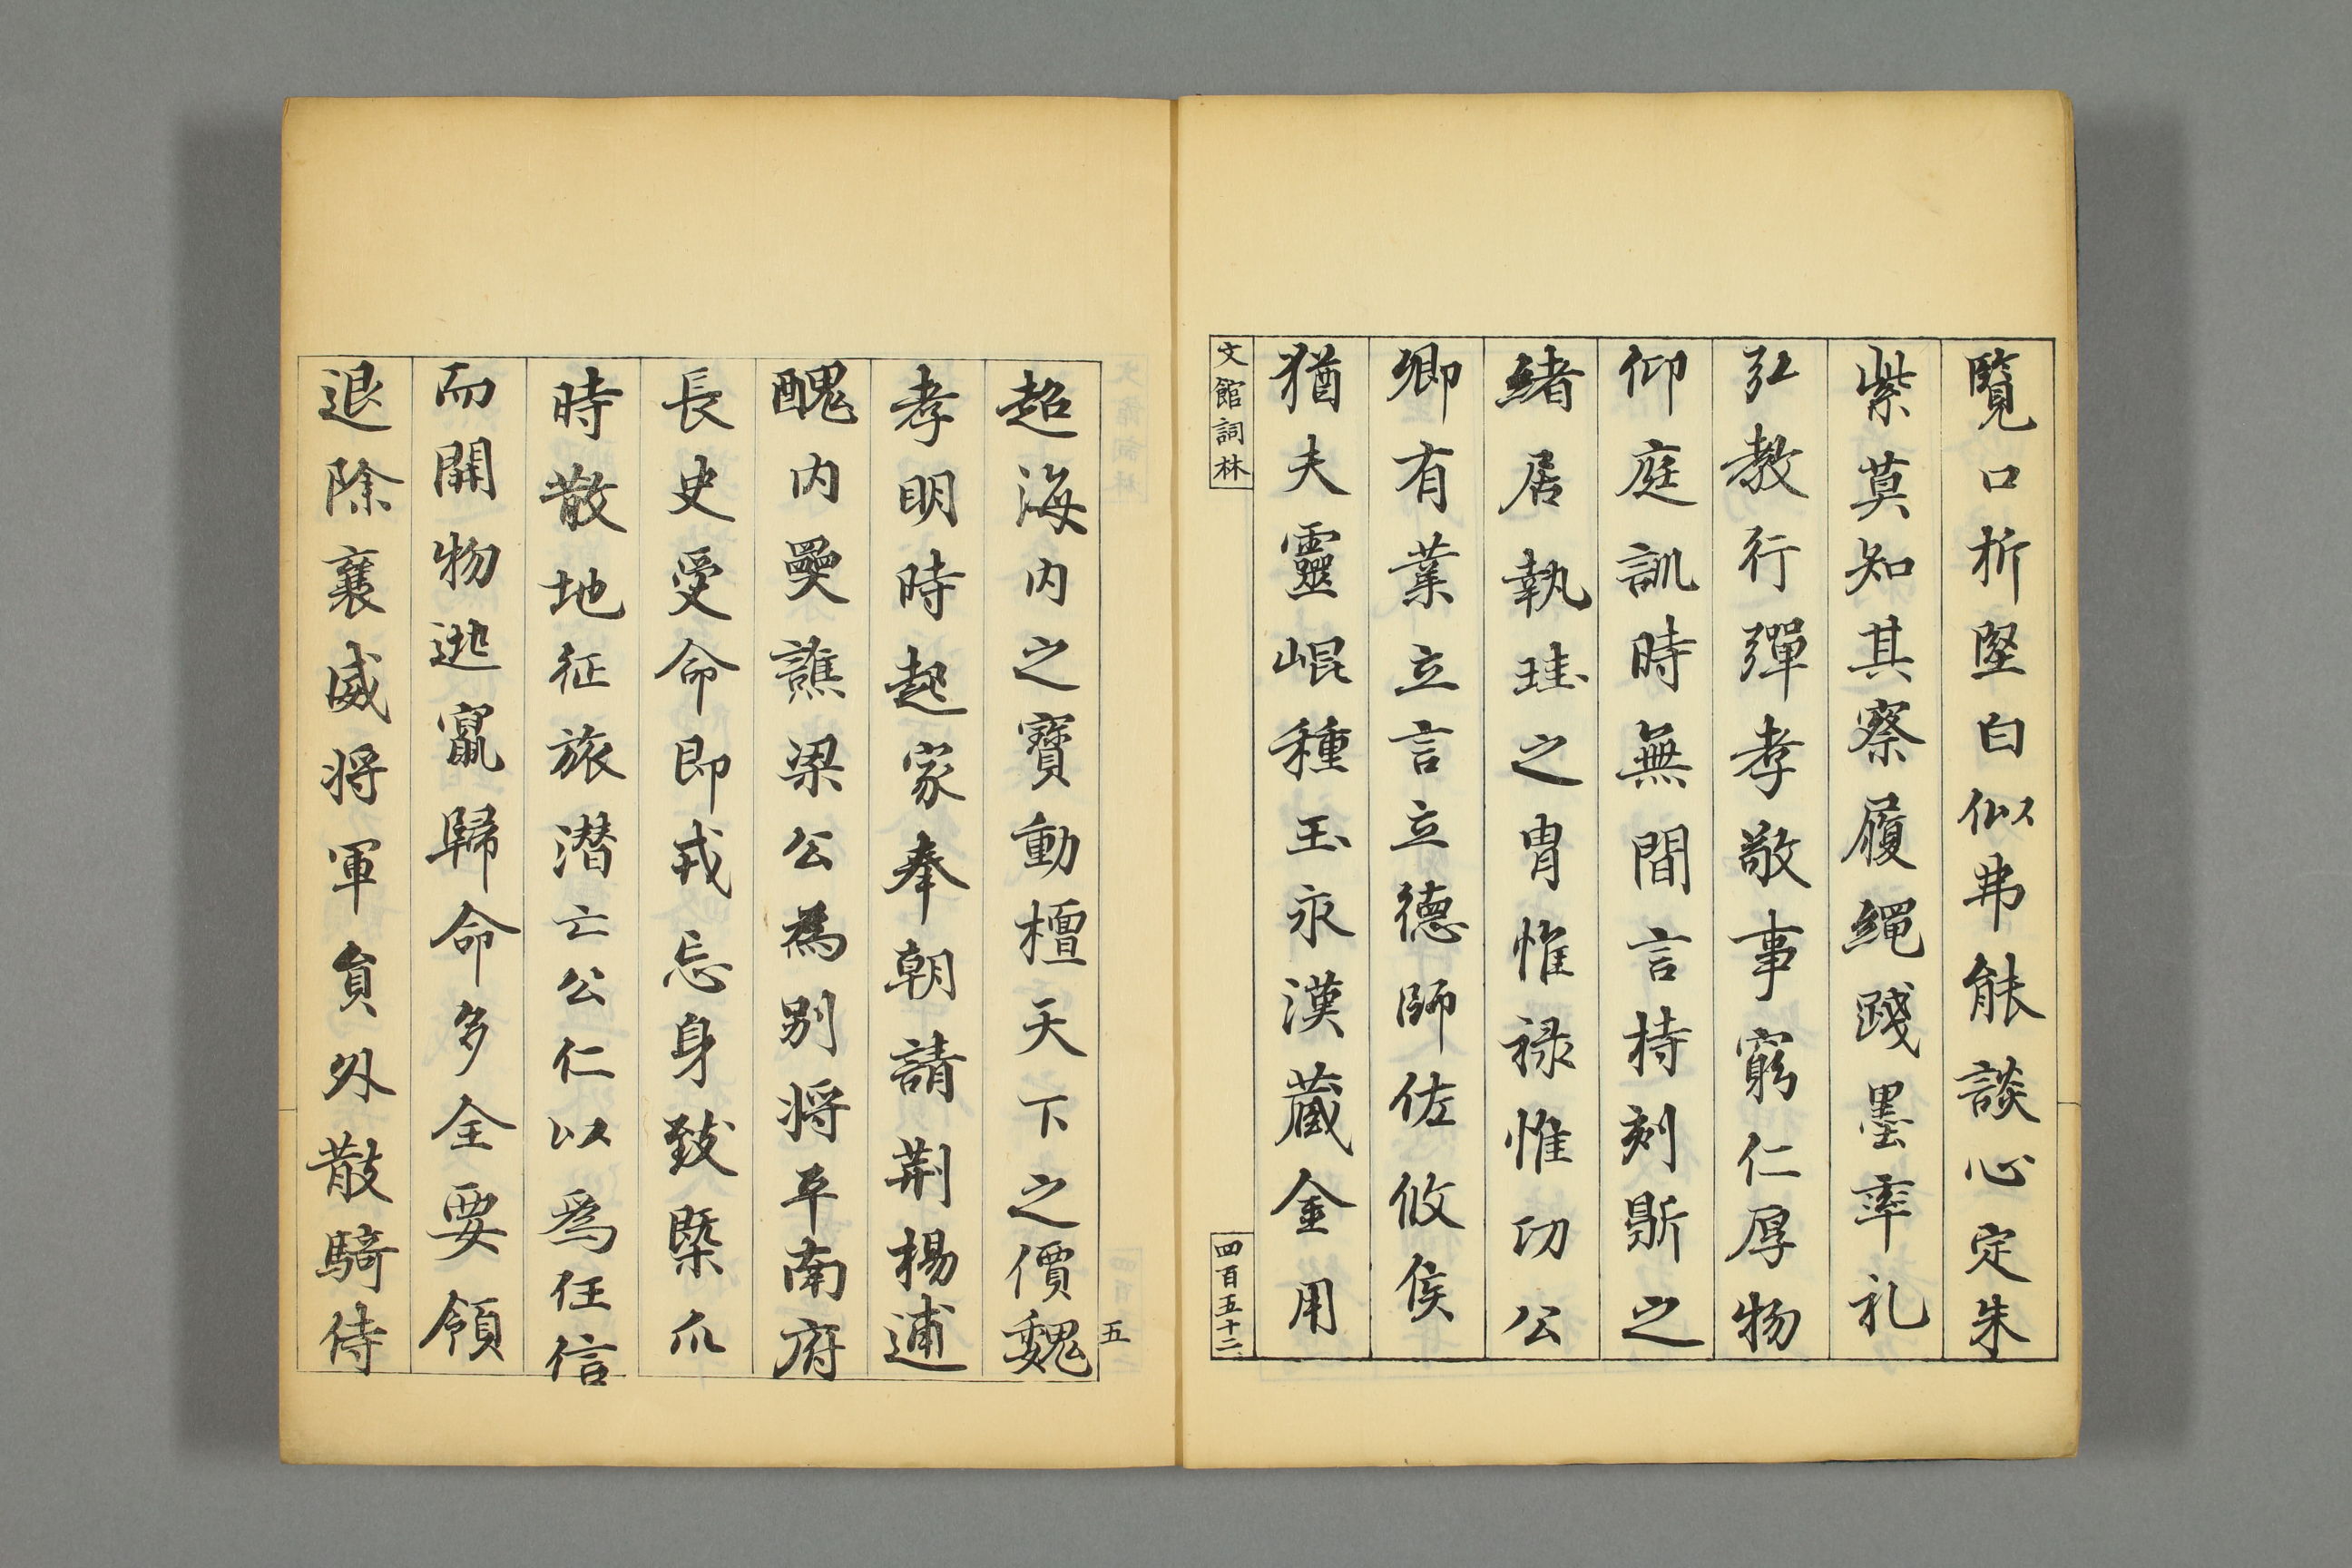 覽口析堅白似弗能談心定朱
紫莫知其察履繩踐墨率礼
弘教行彈孝敬事窮仁厚物
仰庭訓時無間言持刻斲之
緒居執珪之胄惟祿惟功公
卿有業立言立德師佐攸侯
猶夫靈崐種玉永漢蔵金用
文館詞林
四百五十二
五
超海內之寶動檀天下之價魏
孝明時起家奉朝請荆楊逋
醜内㸑譙梁公為別将平南府
長史受命即戎忘身致槩爪
時散地征旅潜亡公仁以爲任信
而開物逃竄歸命多全要領
退除襄威将軍負外散騎侍